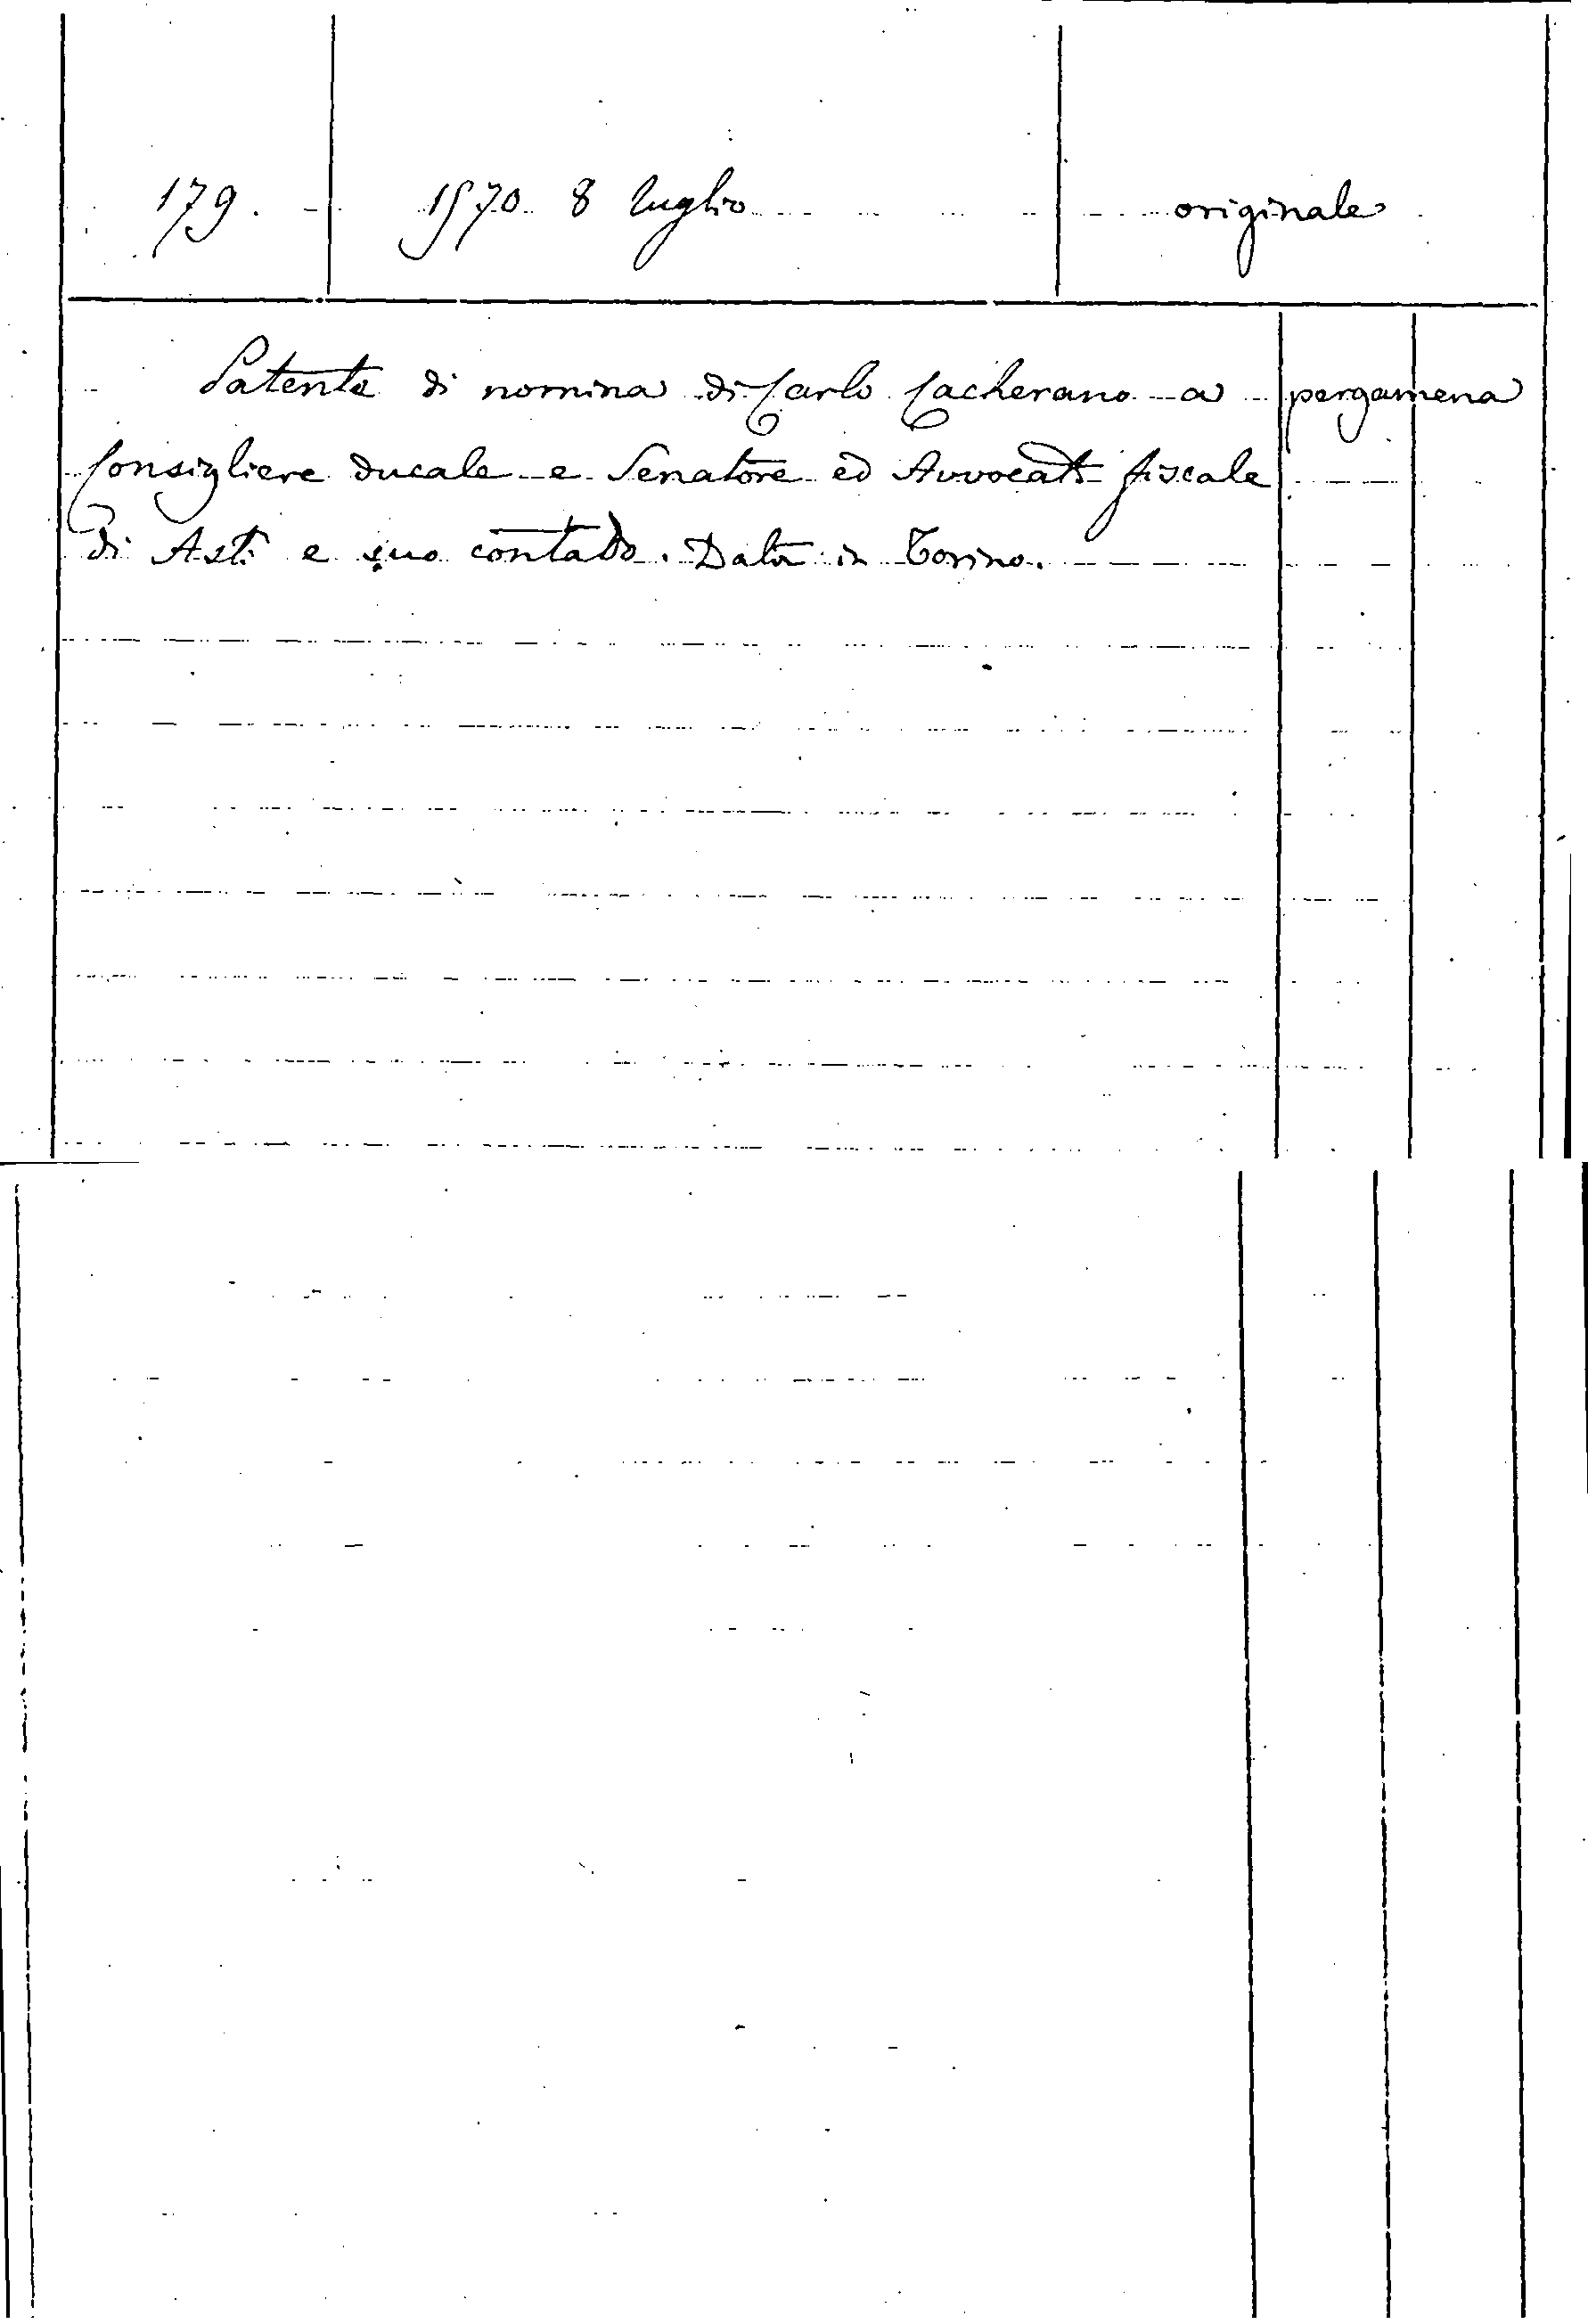 179. 1570 8 luglio originale
Patente di nomina di Carlo Cacherano a pergamena
Consigliere ducale e Senatore ed Avvocato fiscale
di Asti e suo contado. Data in Torino.